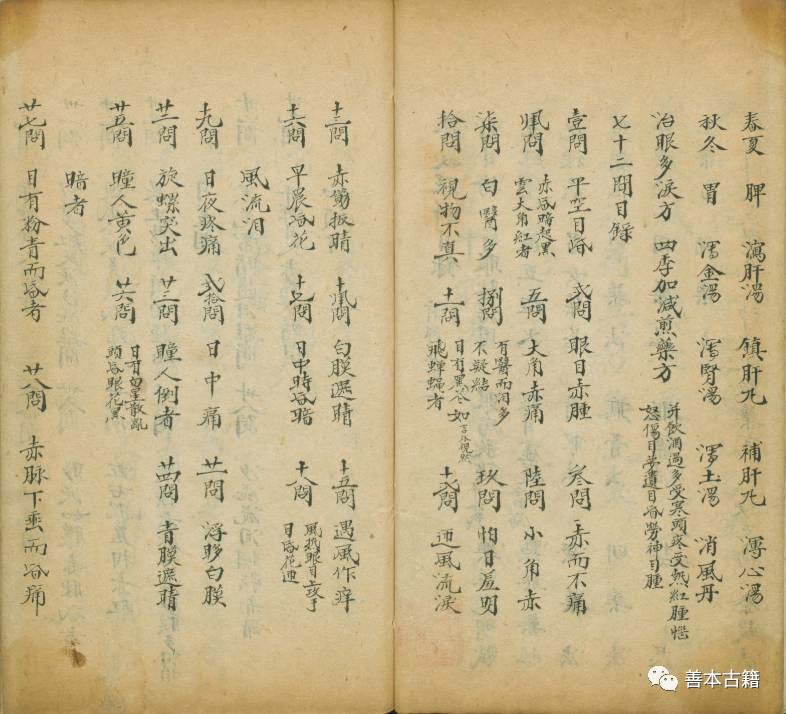 春夏　脾　瀉肝湯　鎮肝丸　補肝丸　瀉心湯
秋冬　胃　瀉金湯　瀉腎湯　瀉土湯　消風丹
治眼多淚方　四季加減煎藥方　并飲酒過多受寒頭疼受熱紅腫惱
怒傷目夢遺目昏勞神目腫
七十二問目錄
壹問　平空目昏　貳問　眼目赤腫　叁問　赤而不痛
肆問　赤昏暗起黑
雲大角紅者　五問　大角赤痛　陸問　小角赤
柒問　白翳多　捌問　有翳而淚多
不疑結　玖問　怕日羞明
拾問　視物不真　十一問　目有黑花如
飛蟬蠅者　十二問　迎風流淚
十三問　赤努扳睛　十四問　白膜遮睛　十五問　遇風作痒
十六問　早晨昏花　十七問　日中時昏暗　十八問　風熱眼目上攻于
目昏花迎
風流泪
十九問　日夜疼痛　貳拾問　日中痛　廿一問　浮眵白膜
廿二問　旋螺突出　廿三問　瞳人倒者　廿四問　青膜遮睛
廿五問　瞳人黃色　廿六問　目有白星散亂
頭昏眼花黑
暗者
廿七問　目有粉青而昏者　廿八問　赤脉下垂而昏痛
善本古籍